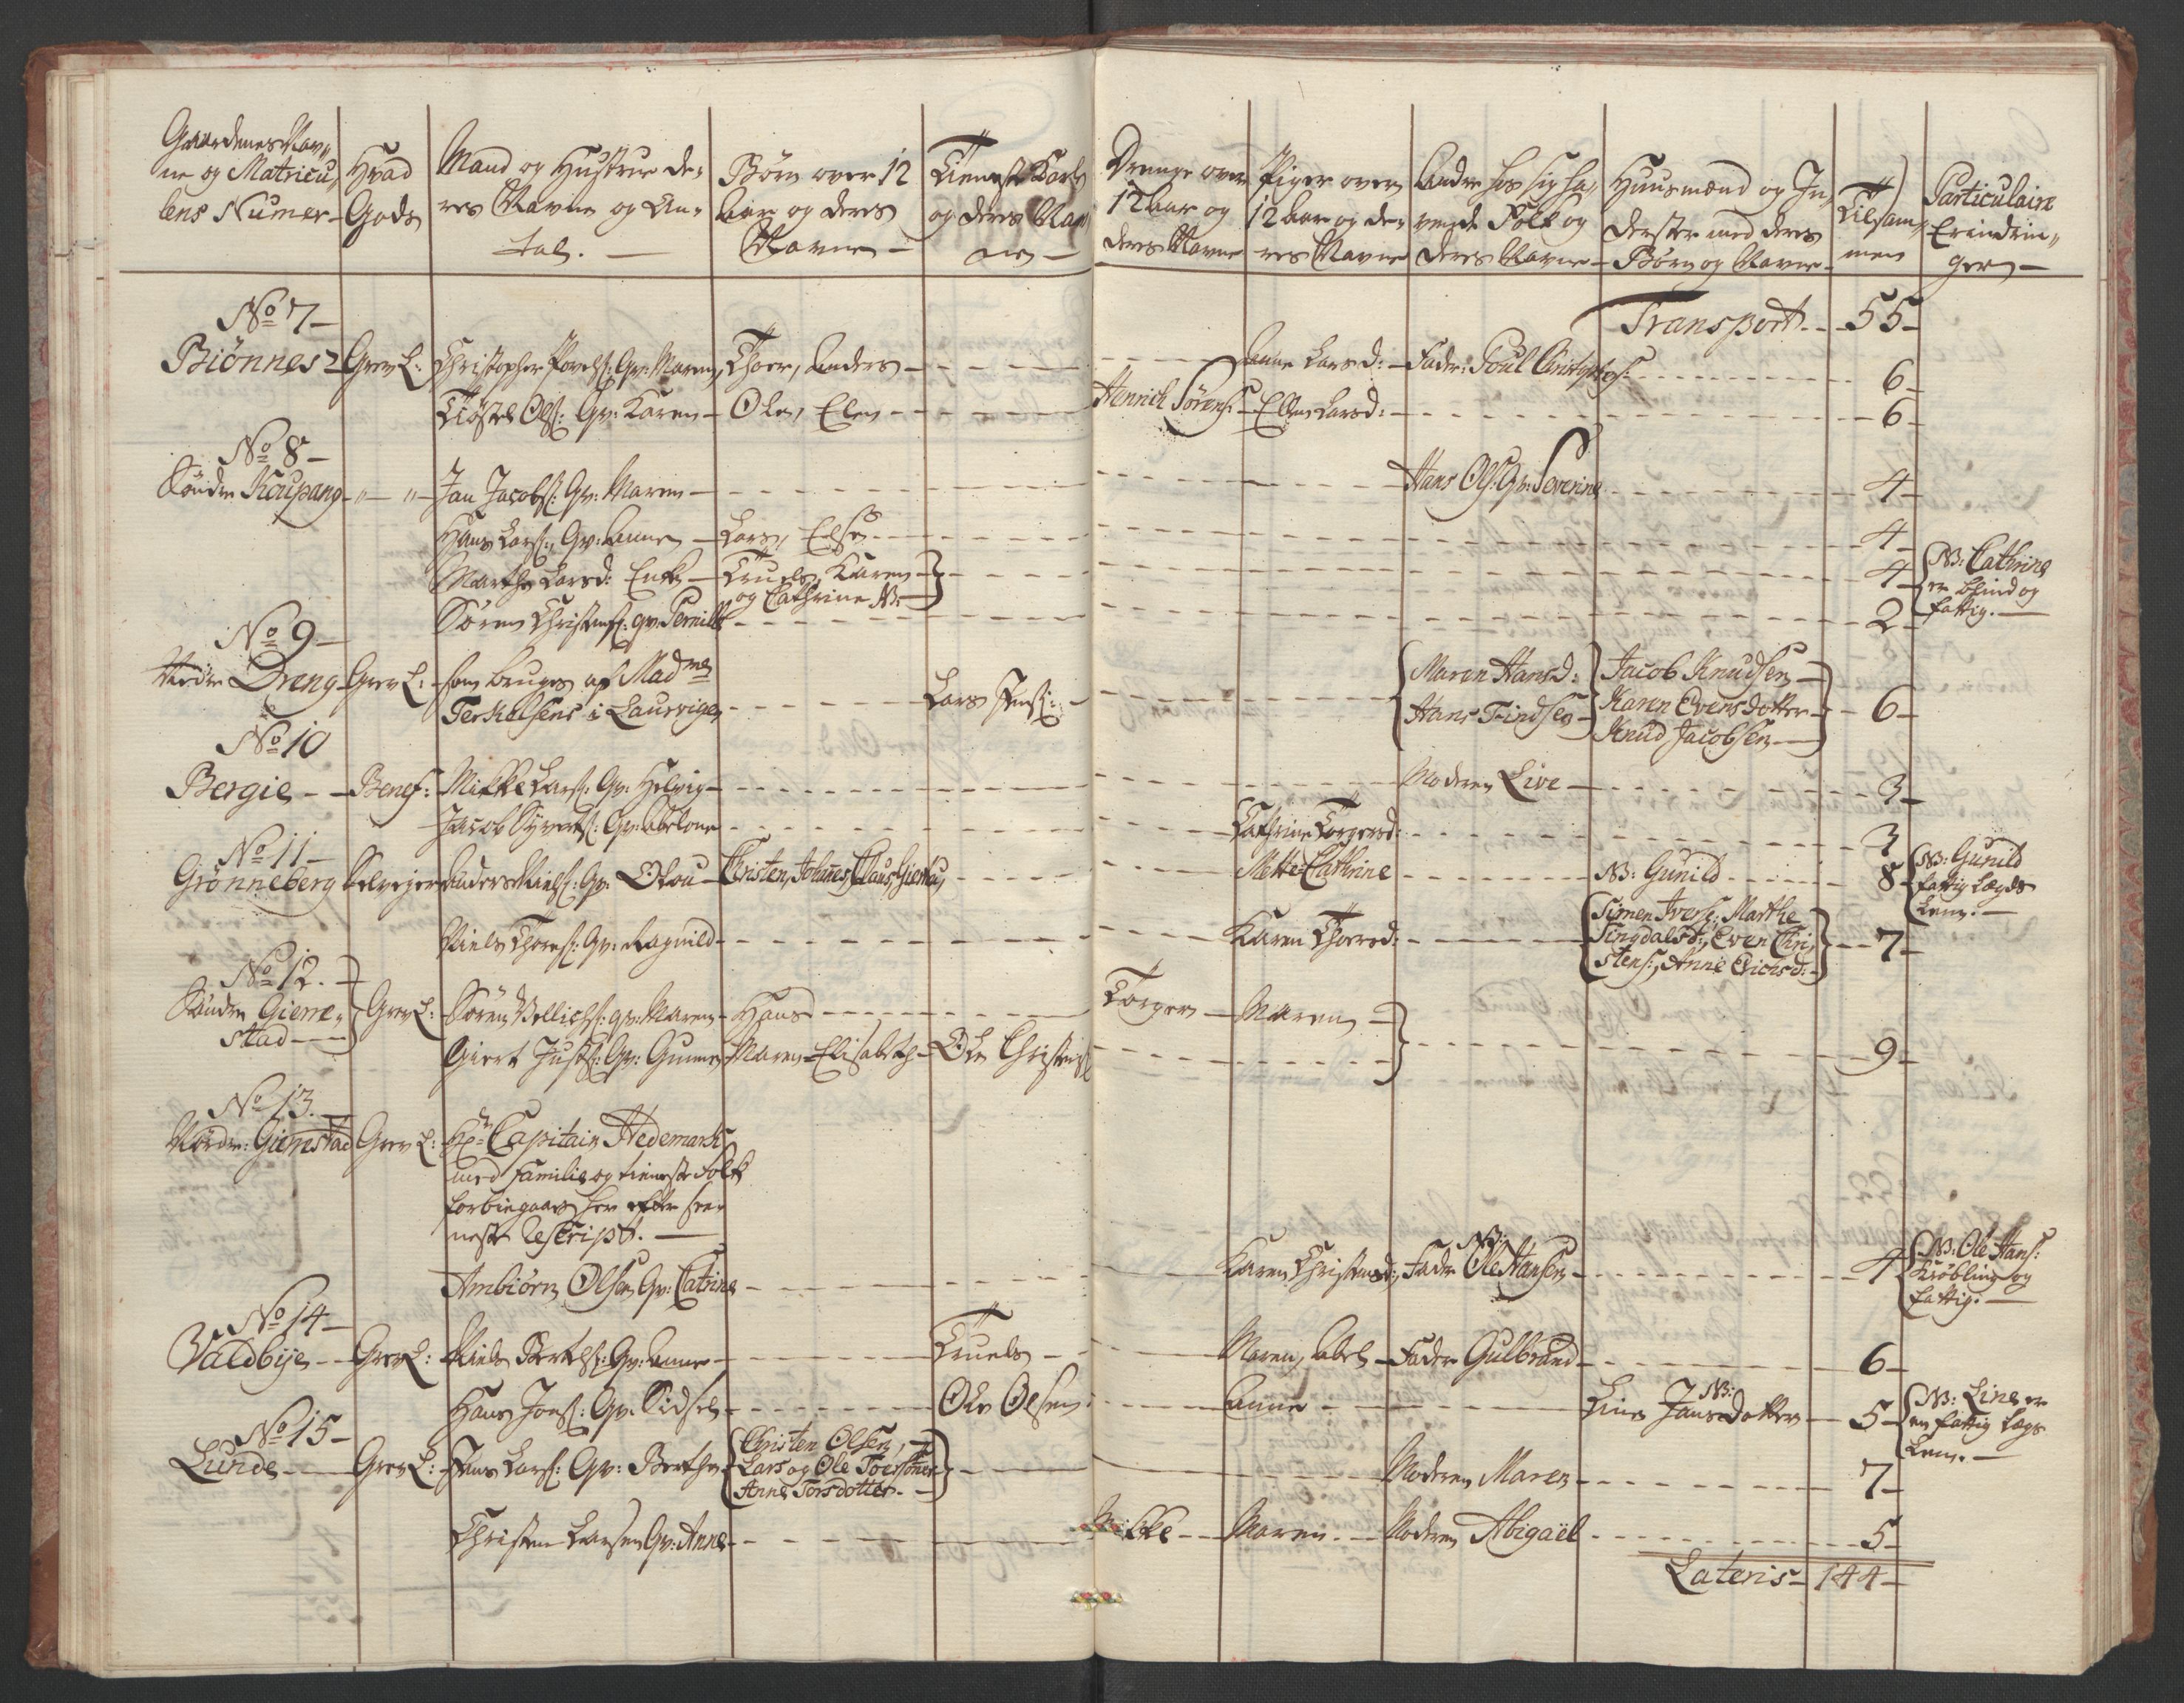 Gaardenes Nav„ ne og Matricu„ lens Numer
Hvad Gods
Mand og Hustrue de„ res Navne og An„ tal.
Børn over 12 Aar og deres Navne
Tieneste Karle og deres Nav„ ne
Drenge over 12 Aar og deres Navne
Piger over 12 Aar og de„ res Navne
Andre hos sig ha„ vende Folk og deres Navne
Huusmænd og In„ derster med deres Børn og Navne
Tilsam„ men
Particulaire Erindrin„ ger
Transport. 55
No 7
Biönnes Grev L: Christopher Povels: Qv: Maren, Thor, Anders Anne Larsd: Fader: Poul Christophers: 6
Tiöstel Ols: Qv: Karen Ole, Elen Henrich Sörens: Ellen Larsd: 6
No 8
Söndre Koupang „ „ Jan Jacobs: Qv: Maren Hans Ols: Qv: Severine 4
Hans Lars:, Qv: Anne Lars, Else 4
Marthe Larsd: Enke Truels, Karen og Cathrine NB 4 NB: Cathrine er blind og fattig.
Sören Christens: qv: Pernille 2
No 9
Nedre Dreng Grev L: som bruges af Madme Terkelsens i Laurvigen Lars Jens: Maren Hansd: Hans Findsen Jacob Knudsen Karen Evensdotter Knud Jacobsen 6
No 10
Bergie Benef: Mikkel Lars: Qv: Helvig Moderen Live 3
Jacob Syverts: Qv: Abelone Cathrine Torgersd: 3
No 11
Grönneberg Selvejer Anders Niels: Qv: Olou Christen, Johanes, Claus, Giertru, Mette Cathrine NB: Gunild 8 NB: Gunild fattig Lægds Lem.
Niels Thores: Qv: Ragnild Karen Thorsd: Simen Ivers: Marthe Singdalsd:, Even Chri„ stens:, Anne Erichsd: 7
No 12.
Söndre Gierre„ stad Grev L: Sören Wellichs: qv: Maren Hans Torger Maren
Giert Justs: Qv: Gunner Maren Elisabeth Ole Christens: 9
No 13.
Nordre: Gierrestad Grev L: Hr Capitain Hedemark
med Familie og tieneste Folk
forbiegaaes her efter see„
neste Rescript.
Ambiörn Olsen Qv: Catrine Karen Christensd:, Fader NB: Ole Hansen 4 NB: Ole Hans: Kröbling og fattig.
No 14
Valdbye Grev L: Niels Bertels: Qv: Anne Truels Maren, Abel Fader Gulbrand 6
Hans Jons: Qv: Sidsel Ole Olsen Anne Line NB: Jansdotter 5 NB: Line er en fattig Legs Lem.
No 15
Lunde Grev L: Jens Lars: Qv: Berthe Christen Olsen, Lars og Ole Toersöner Anne Torsdotter. Moderen Maren 7
Christen Larsen Qv: Anne Mikkel Maren Moderen Abigaël 5
Lateris 144